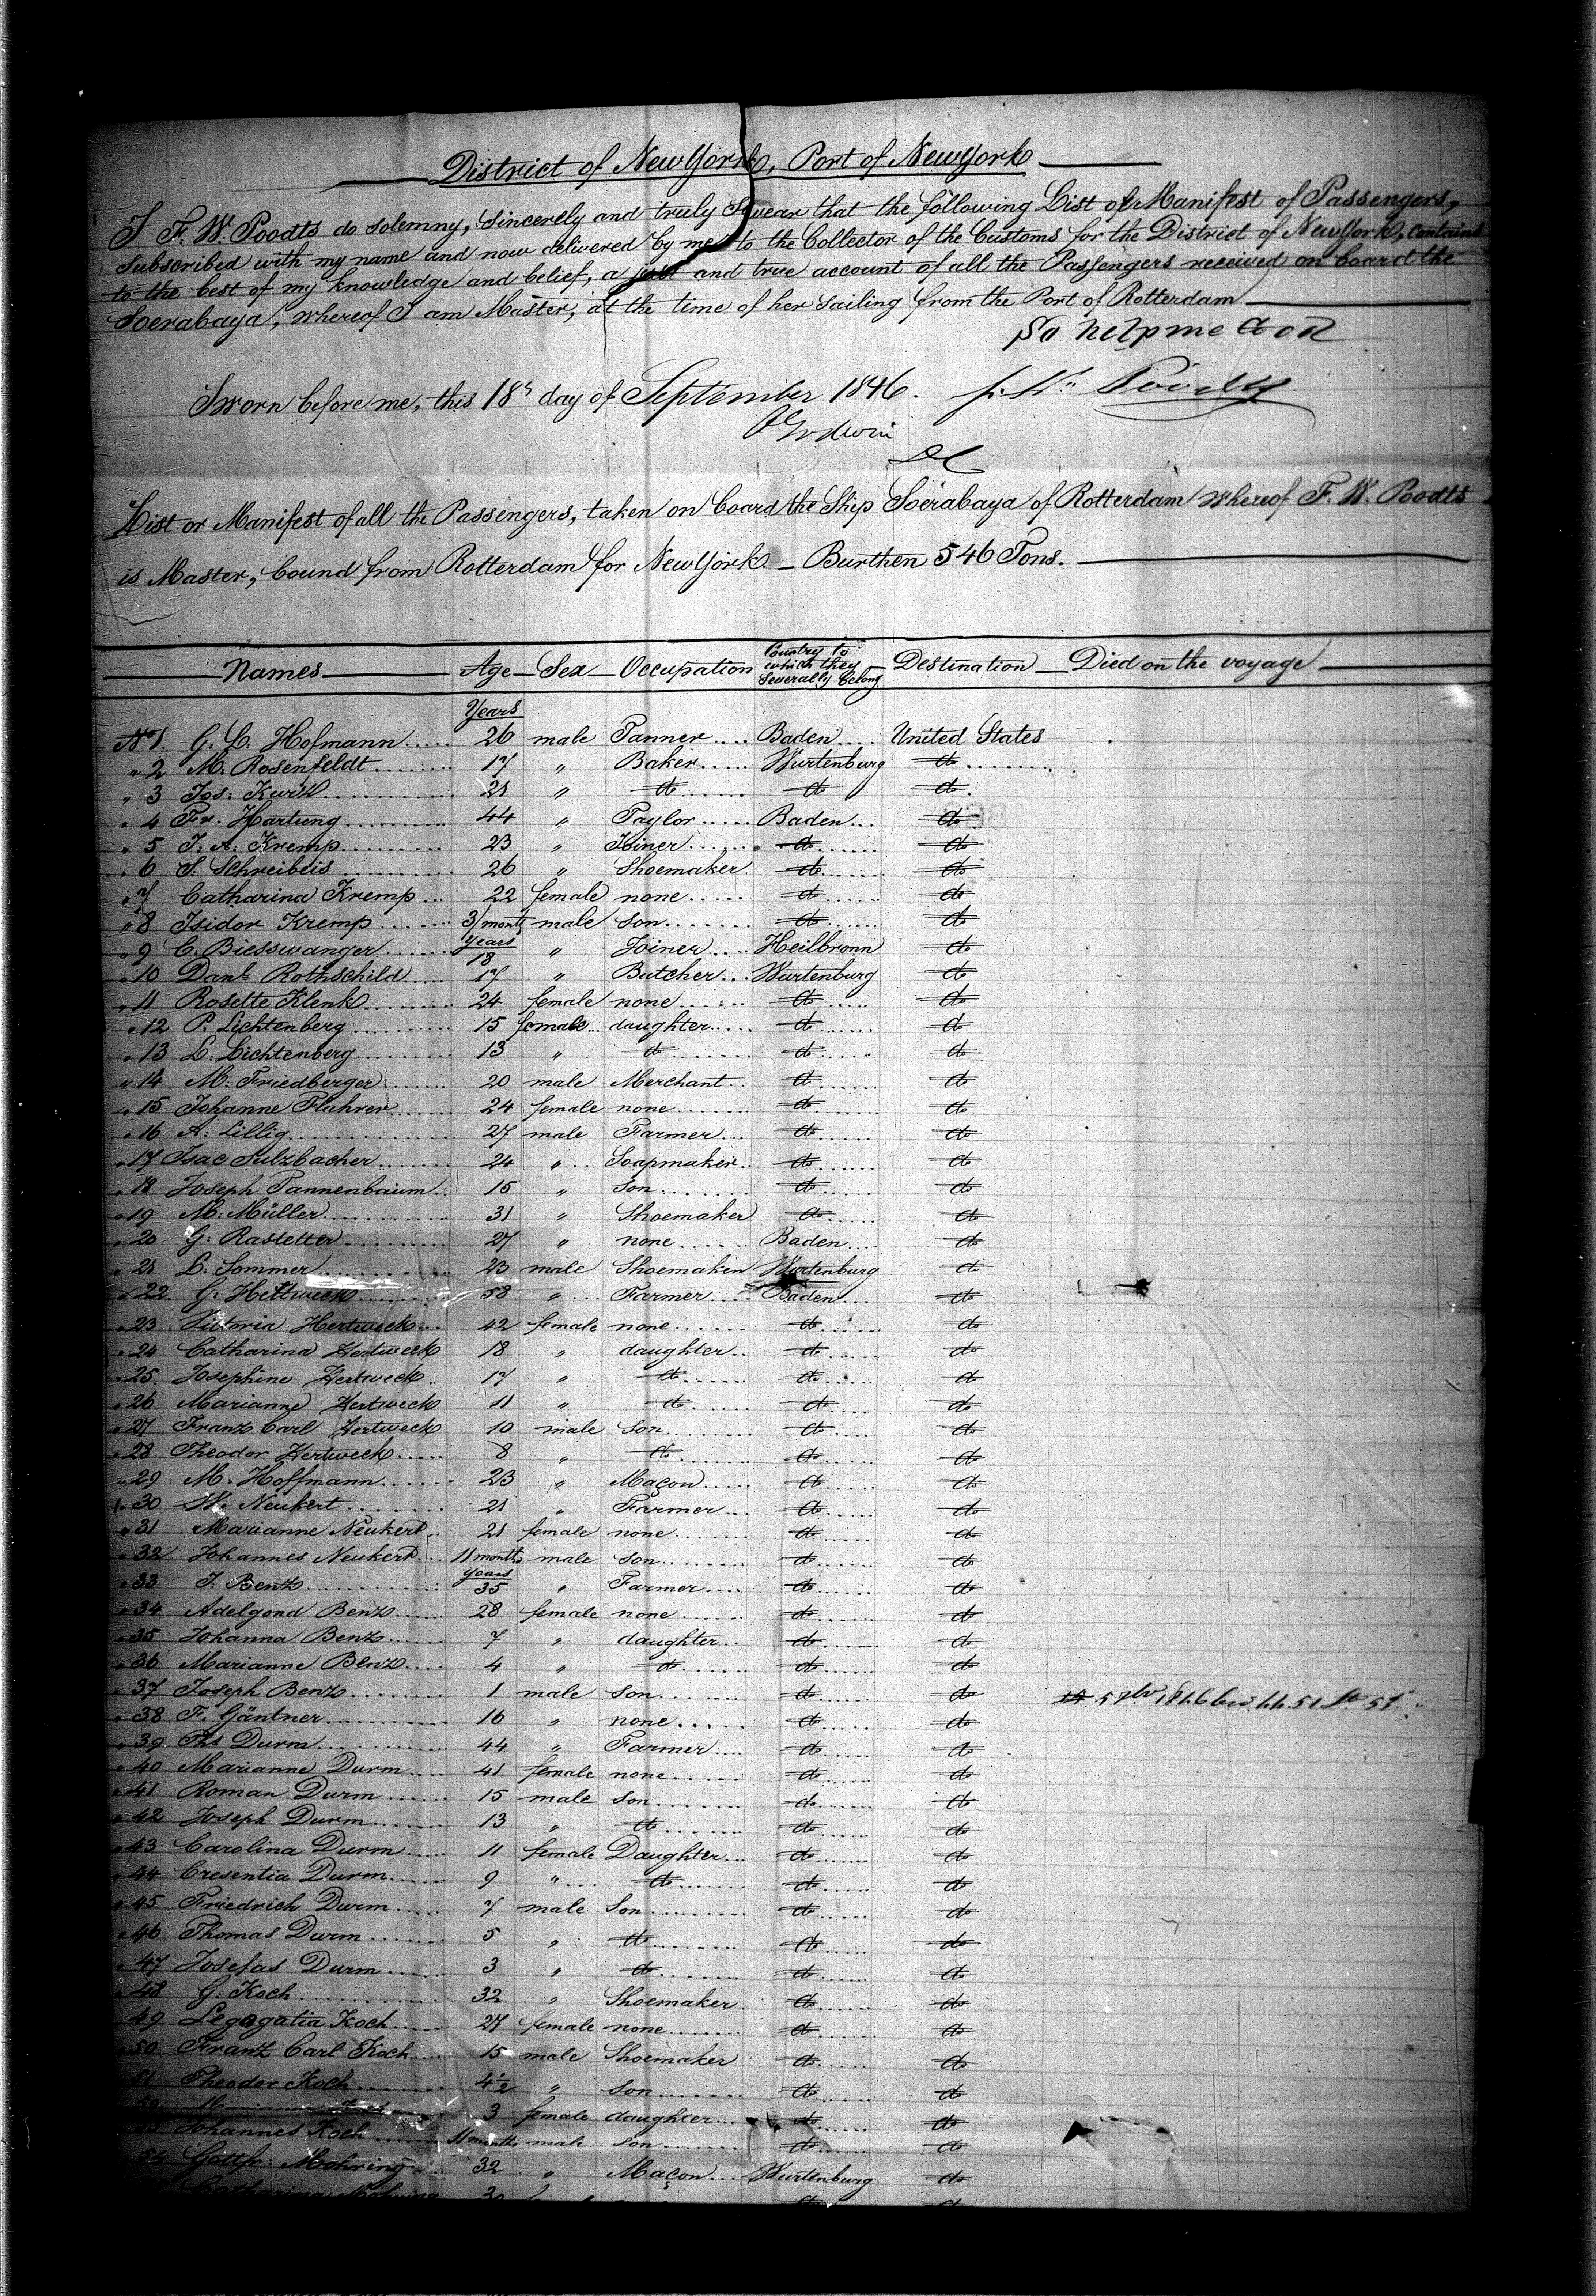 District of New York, Port of New York
I F. W. Poodts do solemny, sincerely and truly swear that the following List of Manifest of Passengers,
subscribed with my name and now delivered by me to the Collector of the Customs for the District of New York, contains
to the best of my knowledge and belief, a just and true account of all the Passengers received on board the
Soerabaya, whereof I am Master, at the time of her sailing from the Port of Rotterdam
So help me God
Sworn before me, this 18th day of September 1846.
List or Manifest of all the Passengers, taken on board the Ship Soerabaya of Rotterdam whereof F. W. Poodts
is Master, bound from Rotterdam for New York — Burthen 546 Tons.
Names Age Sex Occupation Country to which they severally belong Destination Died on the voyage
Years
No 1. G. L. Hofmann 26 male Tanner Baden United States
" 2 M. Rosenfeldt 17 " Baker Wurtenburg do
" 3 Jos: Kurz 21 " do do do
" 4 Fr. Hartung 44 " Taylor Baden do
" 5 J. A. Kremp 23 " Joiner do do
" 6 S. Schreibeis 26 " Shoemaker do do
" 7 Catharina Kremp 22 female none do do
" 8 Isidor Kremp 3/months male son do do
" 9 C. Biesswanger Years 18 " Joiner Heilbronn do
" 10 Danl. Rothschild 17 " Butcher Wurtenburg do
" 11 Rosette Klenk 24 female none do do
" 12 P. Lichtenberg 15 female daughter do do
" 13 L. Lichtenberg 13 " do do do
" 14 M. Friedberger 20 male Merchant do do
" 15 Johanne Fluhrer 24 female none do do
" 16 A. Lillig 27 male Farmer do do
" 17 Isac Sulzbacher 24 " Soapmaker do do
" 18 Joseph Tannenbaum 15 " son do do
" 19 M. Müller 31 " Shoemaker do do
" 20 G. Rastetter 27 " none Baden do
" 21 L. Sommer 23 male Shoemaker Wurtenburg do
" 22 G. Hettweck 58 " Farmer Baden do
" 23 Victoria Hertweck 42 female none do do
" 24 Catharina Hertweck 18 " daughter do do
" 25 Josephine Hertweck 17 " do do do
" 26 Marianne Hertweck 11 " do do do
" 27 Franz Carl Hertweck 10 male son do do
" 28 Theodor Hertweck 8 " do do do
" 29 M. Hoffmann 23 " Maçon do do
" 30 W. Neukert 21 " Farmer do do
" 31 Marianne Neukert 21 female none do do
" 32 Johannes Neukert 11 months male son do do
" 33 J. Benz years 35 " Farmer do do
" 34 Adelgond Benz 28 female none do do
" 35 Johanna Benz 7 " daughter do do
" 36 Marianne Benz 4 " do do do
" 37 Joseph Benz 1 male son do do
" 38 F. Gäntner 16 " none do do
" 39 Ths Durm 44 " Farmer do do
" 40 Marianne Durm 41 female none do do
" 41 Roman Durm 15 male son do do
" 42 Joseph Durm 13 " do do do
" 43 Carolina Durm 11 female Daughter do do
" 44 Cresentia Durm 9 " do do do
" 45 Friedrich Durm 7 male son do do
" 46 Thomas Durm 5 " do do do
" 47 Josefas Durm 3 " do do do
" 48 G. Koch 32 " Shoemaker do do
" 49 Legogatia Koch 27 female none do do
" 50 Franz Carl Koch 15 male Shoemaker do do
51 Theodor Koch 4½ " son do do
3 female daughter do do
53 Johannes Koch 11 months male son do do
54 Gottfr: Mohring 32 " Maçon Wurtenburg do
Catharina Mohring